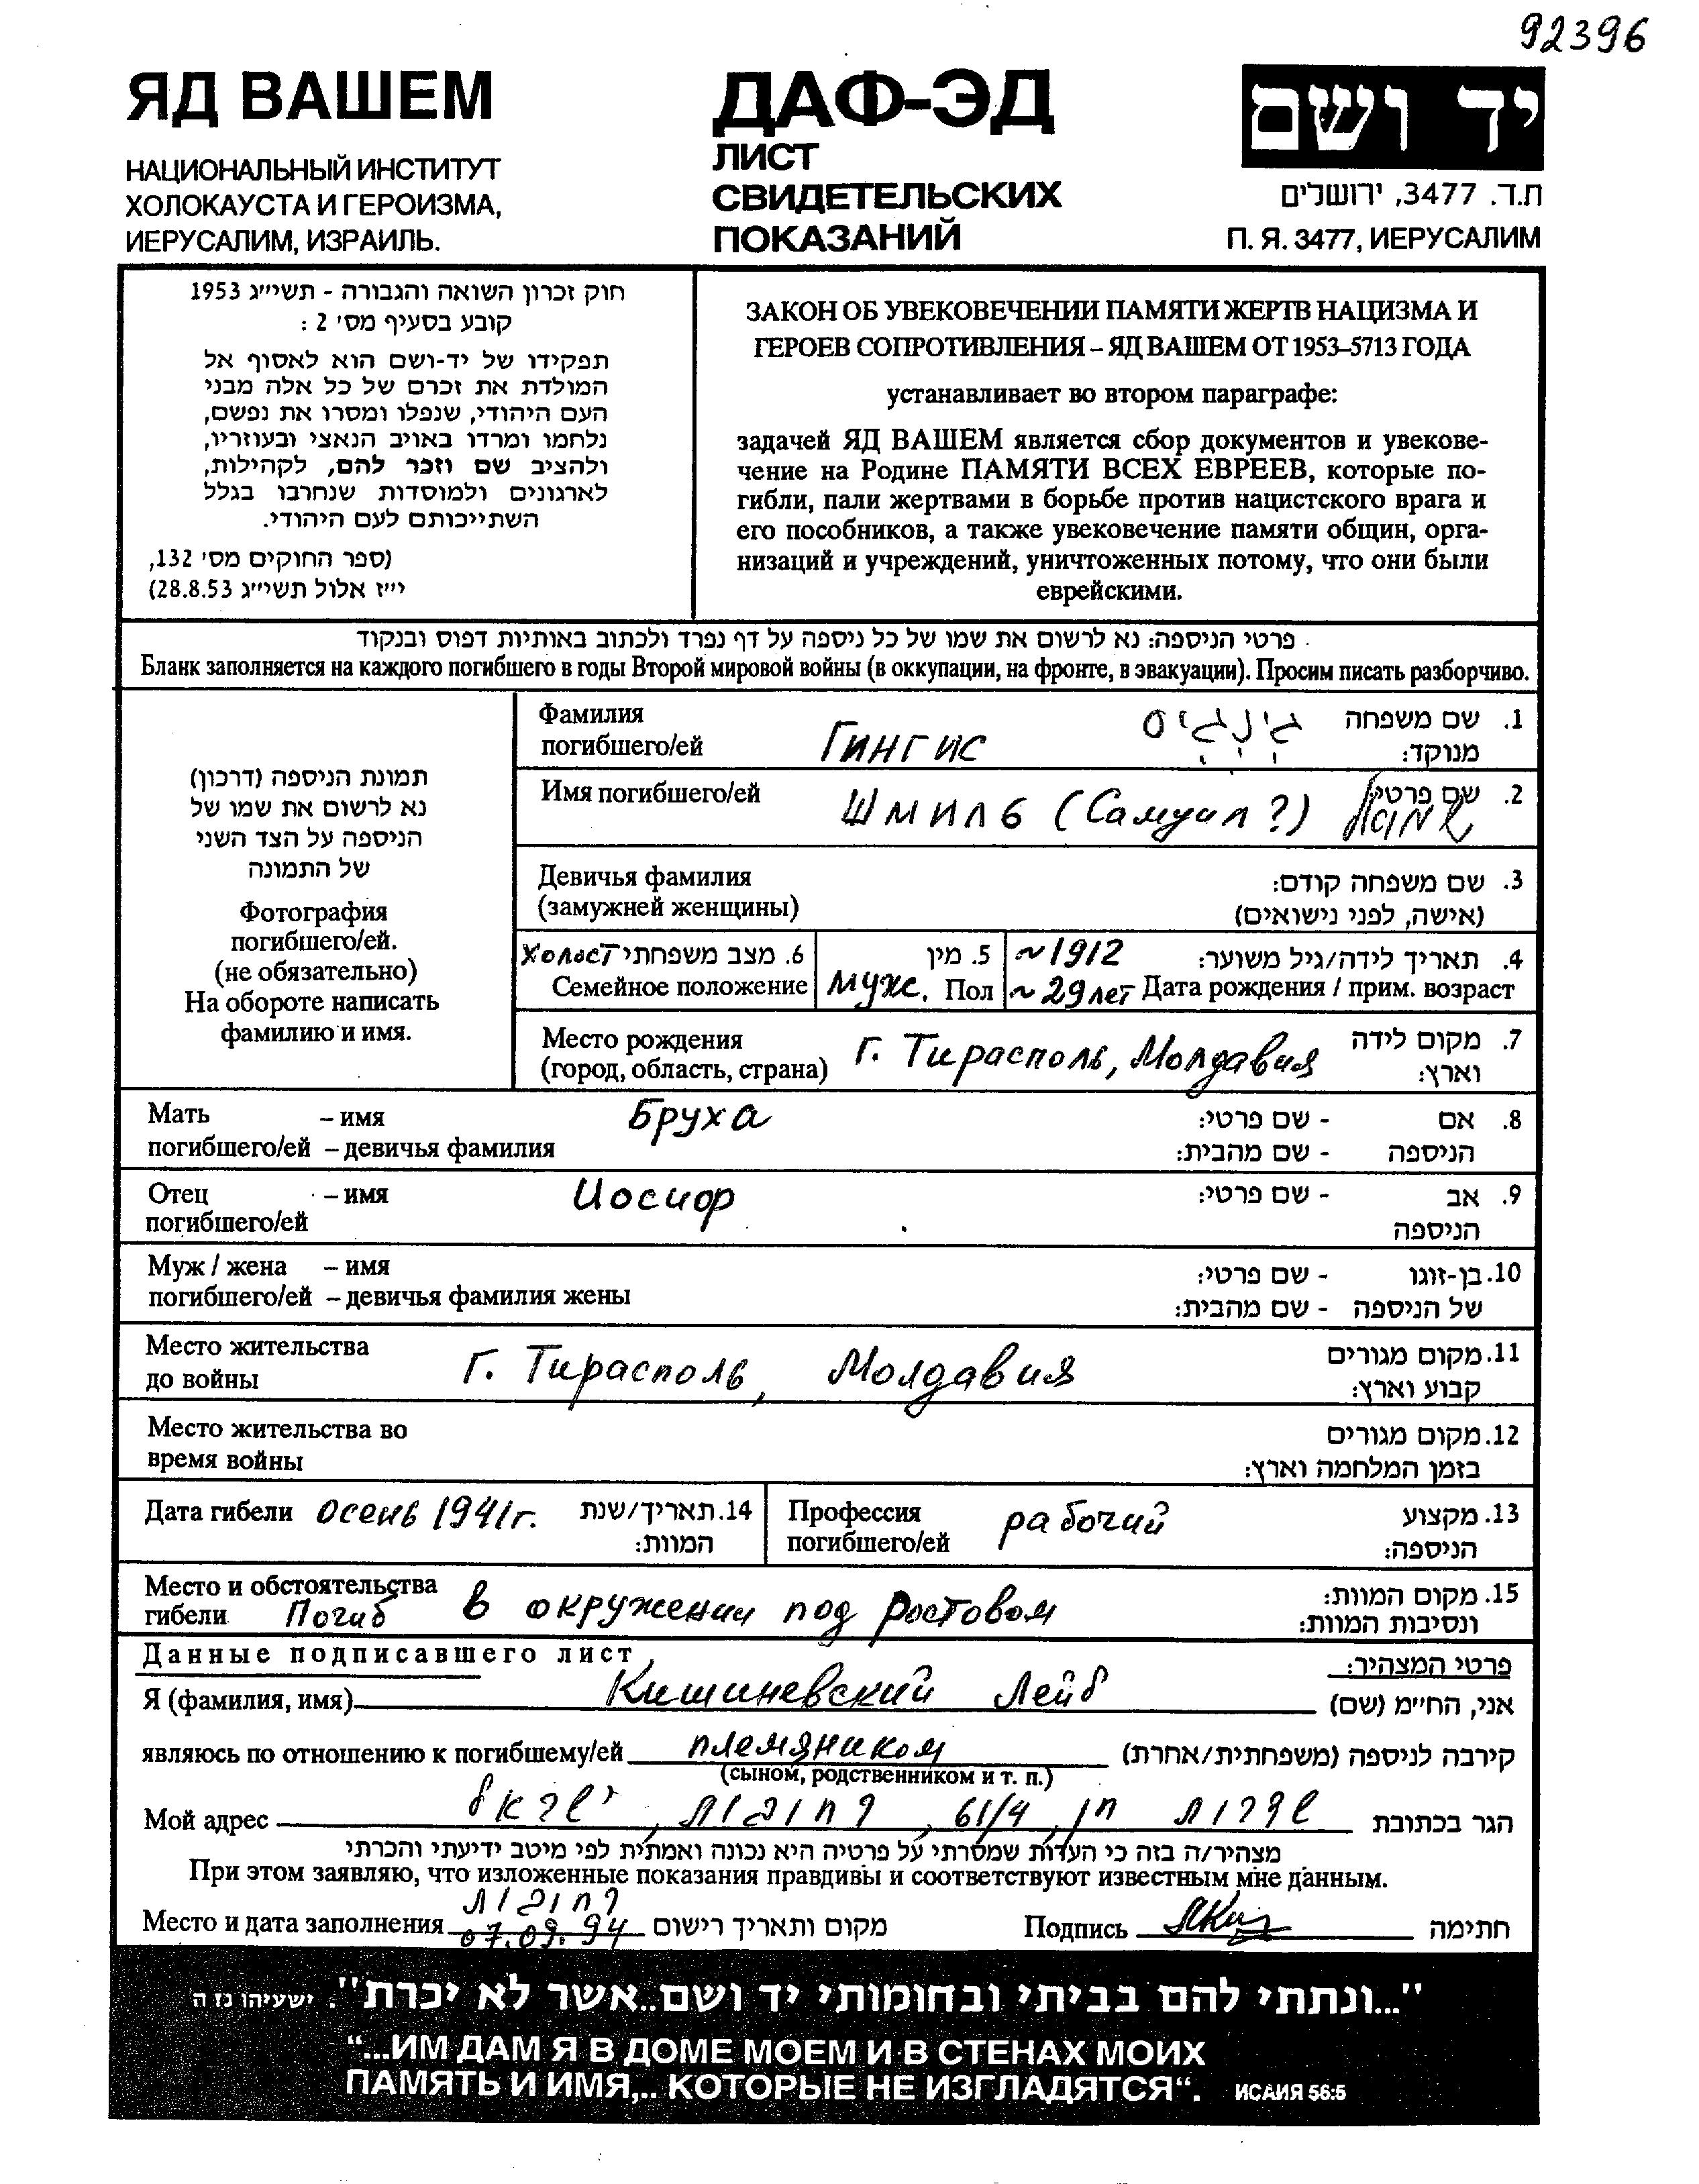 92396
ЯД ВАШЕМ
НАЦИОНАЛЬНЫЙ ИНСТИТУТ
ХОЛОКАУСТА И ГЕРОИЗМА,
ИЕРУСАЛИМ, ИЗРАИЛЬ.
ДАФ-ЭД
ЛИСТ
СВИДЕТЕЛЬСКИХ
ПОКАЗАНИЙ
יד ושם
ת.ד. 3477, ירושלים
П. Я. 3477, ИЕРУСАЛИМ
חוק זכרון השואה והגבורה - תשי״ג 1953
קובע בסעיף מס׳ 2 :
תפקידו של יד-ושם הוא לאסוף אל
המולדת את זכרם של כל אלה מבני
העם היהודי, שנפלו ומסרו את נפשם,
נלחמו ומרדו באויב הנאצי ובעוזריו,
ולהציב שם וזכר להם, לקהילות,
לארגונים ולמוסדות שנחרבו בגלל
השתייכותם לעם היהודי.
(ספר החוקים מס׳ 132,
י״ז אלול תשי״ג 28.8.53)
ЗАКОН ОБ УВЕКОВЕЧЕНИИ ПАМЯТИ ЖЕРТВ НАЦИЗМА И
ГЕРОЕВ СОПРОТИВЛЕНИЯ – ЯД ВАШЕМ ОТ 1953–5713 ГОДА
устанавливает во втором параграфе:
задачей ЯД ВАШЕМ является сбор документов и увекове-
чение на Родине ПАМЯТИ ВСЕХ ЕВРЕЕВ, которые по-
гибли, пали жертвами в борьбе против нацистского врага и
его пособников, а также увековечение памяти общин, орга-
низаций и учреждений, уничтоженных потому, что они были
еврейскими.
פרטי הניספה: נא לרשום את שמו של כל ניספה על דף נפרד ולכתוב באותיות דפוס ובנקוד
Бланк заполняется на каждого погибшего в годы Второй мировой войны (в оккупации, на фронте, в эвакуации). Просим писать разборчиво.
תמונת הניספה (דרכון)
נא לרשום את שמו של
הניספה על הצד השני
של התמונה
Фотография
погибшего/ей.
(не обязательно)
На обороте написать
фамилию и имя.
Фамилия
погибшего/ей Гингис גינגיס
1. שם משפחה
מנוקד:
Имя погибшего/ей Шмиль (Самуил?)
2. שם פרטי
Девичья фамилия
(замужней женщины)
3. שם משפחה קודם:
(אישה, לפני נישואים)
холост 6. מצב משפחתי
Семейное положение
5. מין
муж. Пол
~1912 4. תאריך לידה/גיל משוער:
~29 лет Дата рождения / прим. возраст
Место рождения
(город, область, страна) г. Тирасполь, Молдавия
7. מקום לידה
וארץ:
Мать – имя Бруха
погибшего/ей – девичья фамилия
8. אם - שם פרטי:
הניספה - שם מהבית:
Отец – имя Иосиф
погибшего/ей
9. אב - שם פרטי:
הניספה
Муж / жена – имя
погибшего/ей – девичья фамилия жены
10. בן-זוגו - שם פרטי:
של הניספה - שם מהבית:
Место жительства
до войны г. Тирасполь, Молдавия
11. מקום מגורים
קבוע וארץ:
Место жительства во
время войны
12. מקום מגורים
בזמן המלחמה וארץ:
Дата гибели осень 1941г. 14. תאריך/שנת
המוות:
Профессия
погибшего/ей рабочий
13. מקצוע
הניספה:
Место и обстоятельства
гибели Погиб в окружении под Ростовом
15. מקום המוות:
ונסיבות המוות:
Данные подписавшего лист
פרטי המצהיר:
Я (фамилия, имя) Кишиневский Лейб אני, הח״מ (שם)
являюсь по отношению к погибшему/ей племяником קירבה לניספה (משפחתית/אחרת)
(сыном, родственником и т. п.)
Мой адрес 61/4 הגר בכתובת
מצהיר/ה בזה כי העדות שמסרתי על פרטיה היא נכונה ואמתית לפי מיטב ידיעתי והכרתי
При этом заявляю, что изложенные показания правдивы и соответствуют известным мне данным.
Место и дата заполнения 07.09.94 מקום ותאריך רישום
Подпись חתימה
"...ונתתי להם בביתי ובחומותי יד ושם..אשר לא יכרת". ישעיהו נז ה
“...ИМ ДАМ Я В ДОМЕ МОЕМ И В СТЕНАХ МОИХ
ПАМЯТЬ И ИМЯ,.. КОТОРЫЕ НЕ ИЗГЛАДЯТСЯ“. ИСАИЯ 56:5